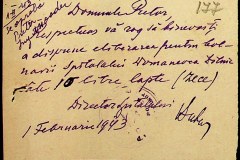 177
Domnule Pretor
Respectuos vă rog să binevoiți
a dispune eliberarea pentru bol-
navii Spitalului Domanevca Zilnic
câte 10 litre lapte (Zece)
Directorul spitalului
1 Februarie 1943